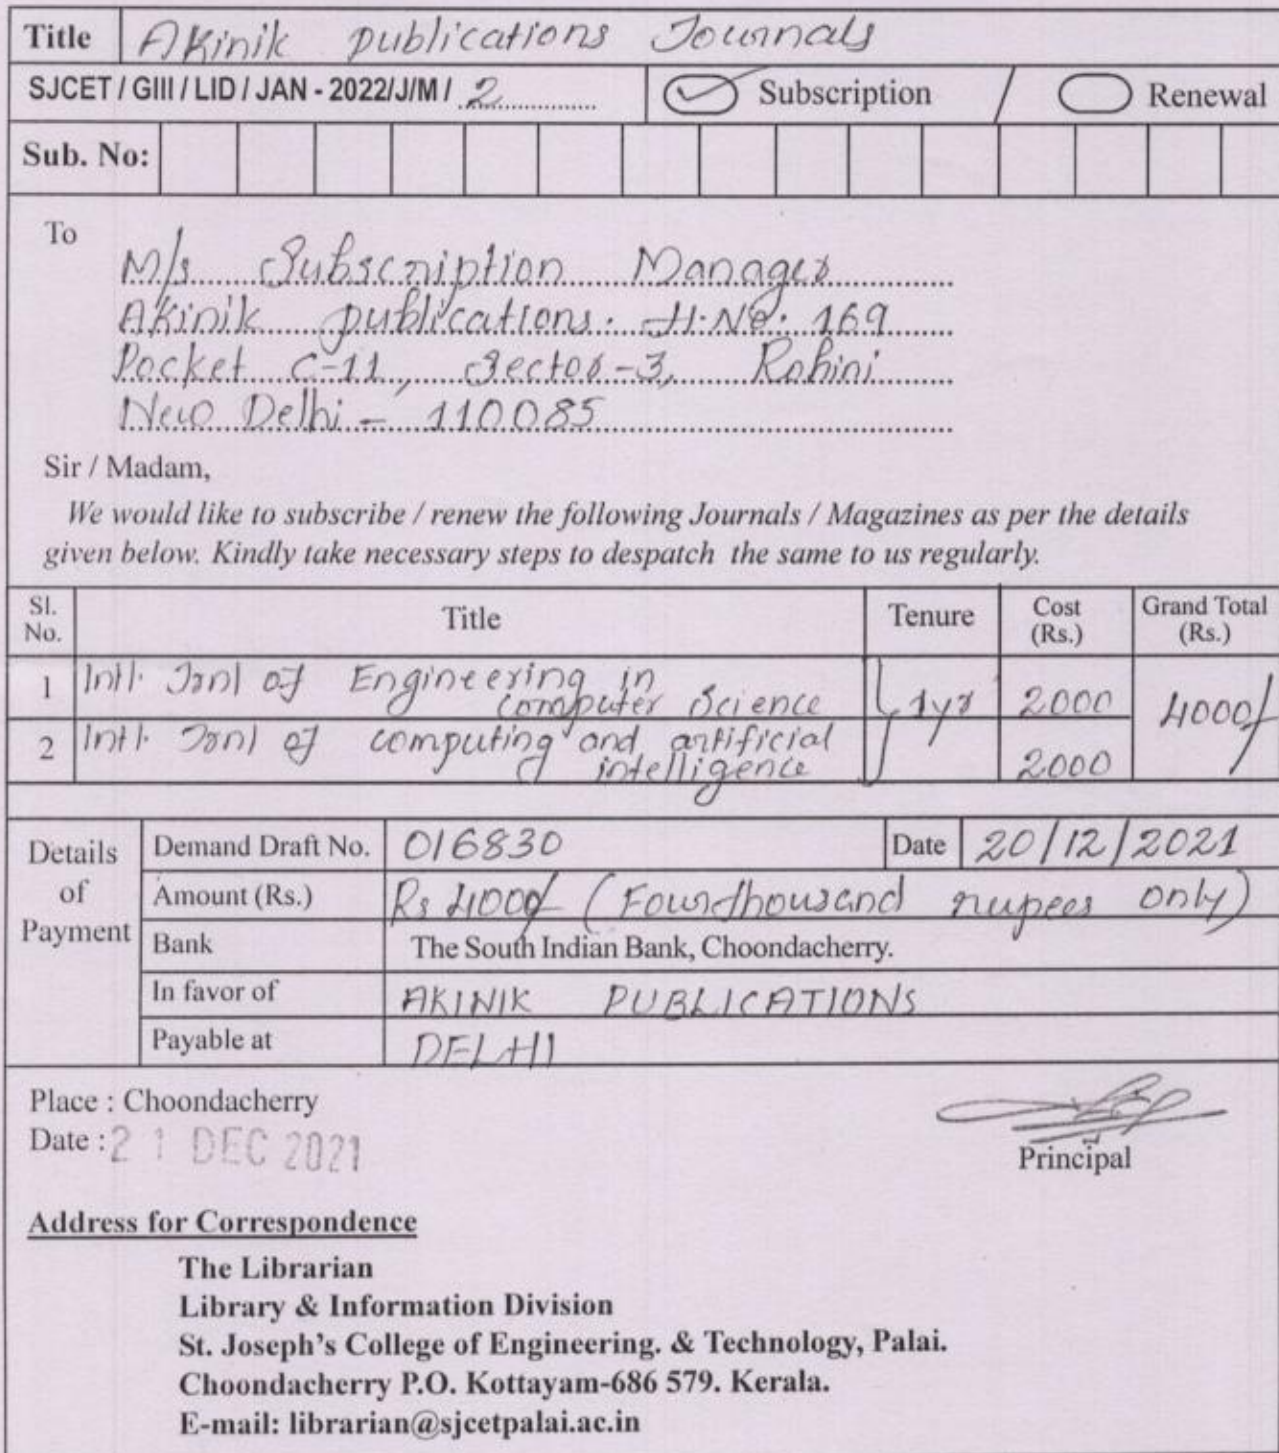 Title Akinik publications Journals
SJCET / GIII / LID / JAN - 2022/J/M/ 2 Subscription / Renewal
Sub. No:
To
M/s Subscription Manager
Akinik publications. H.No. 169
Pocket C-11, Sector-3, Rohini
New Delhi - 110085
Sir / Madam,
We would like to subscribe / renew the following Journals / Magazines as per the details
given below. Kindly take necessary steps to despatch the same to us regularly.
Sl. No. Title Tenure Cost (Rs.) Grand Total (Rs.)
1 Intl. Jrnl of Engineering in
computer Science 1yr 2000 4000/
2 Intl. Jrnl of computing and artificial
intelligence 2000
Details of Payment
Demand Draft No. 016830 Date 20/12/2021
Amount (Rs.) Rs 4000/- (Fourthousand rupees only)
Bank The South Indian Bank, Choondacherry.
In favor of AKINIK PUBLICATIONS
Payable at DELHI
Place : Choondacherry
Date : 21 DEC 2021
Principal
Address for Correspondence
The Librarian
Library & Information Division
St. Joseph's College of Engineering. & Technology, Palai.
Choondacherry P.O. Kottayam-686 579. Kerala.
E-mail: librarian@sjcetpalai.ac.in